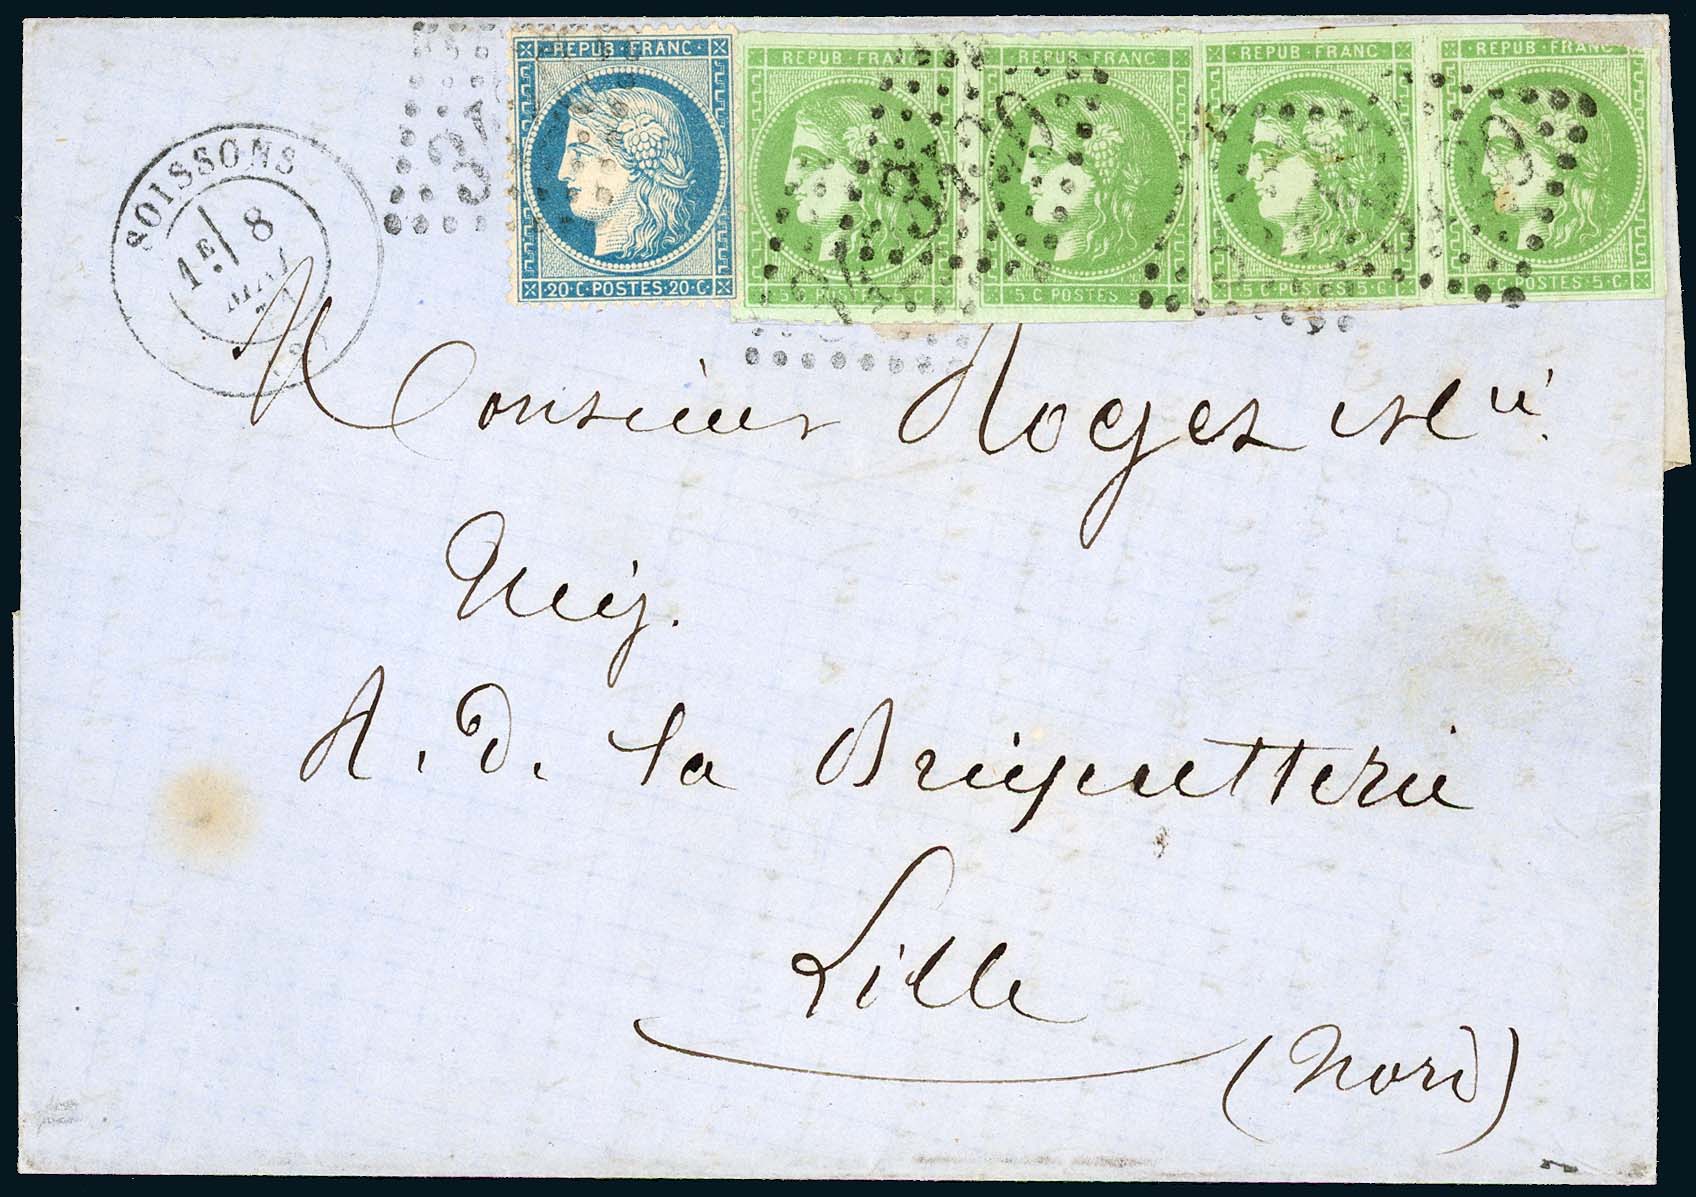 REPUB·FRANC·
20·C·POSTES·20·C·
REPUB·FRANC
REPUB·FRANC
5·C·POSTES
REPUB·FRANC
5·C·POSTES·5·C·
REPUB·FRANC
POSTES·5·C·
SOISSONS
1E 8
MAI
71
Monsieur
Nég.
A. D. la Briquetterie
Lille
(Nord)